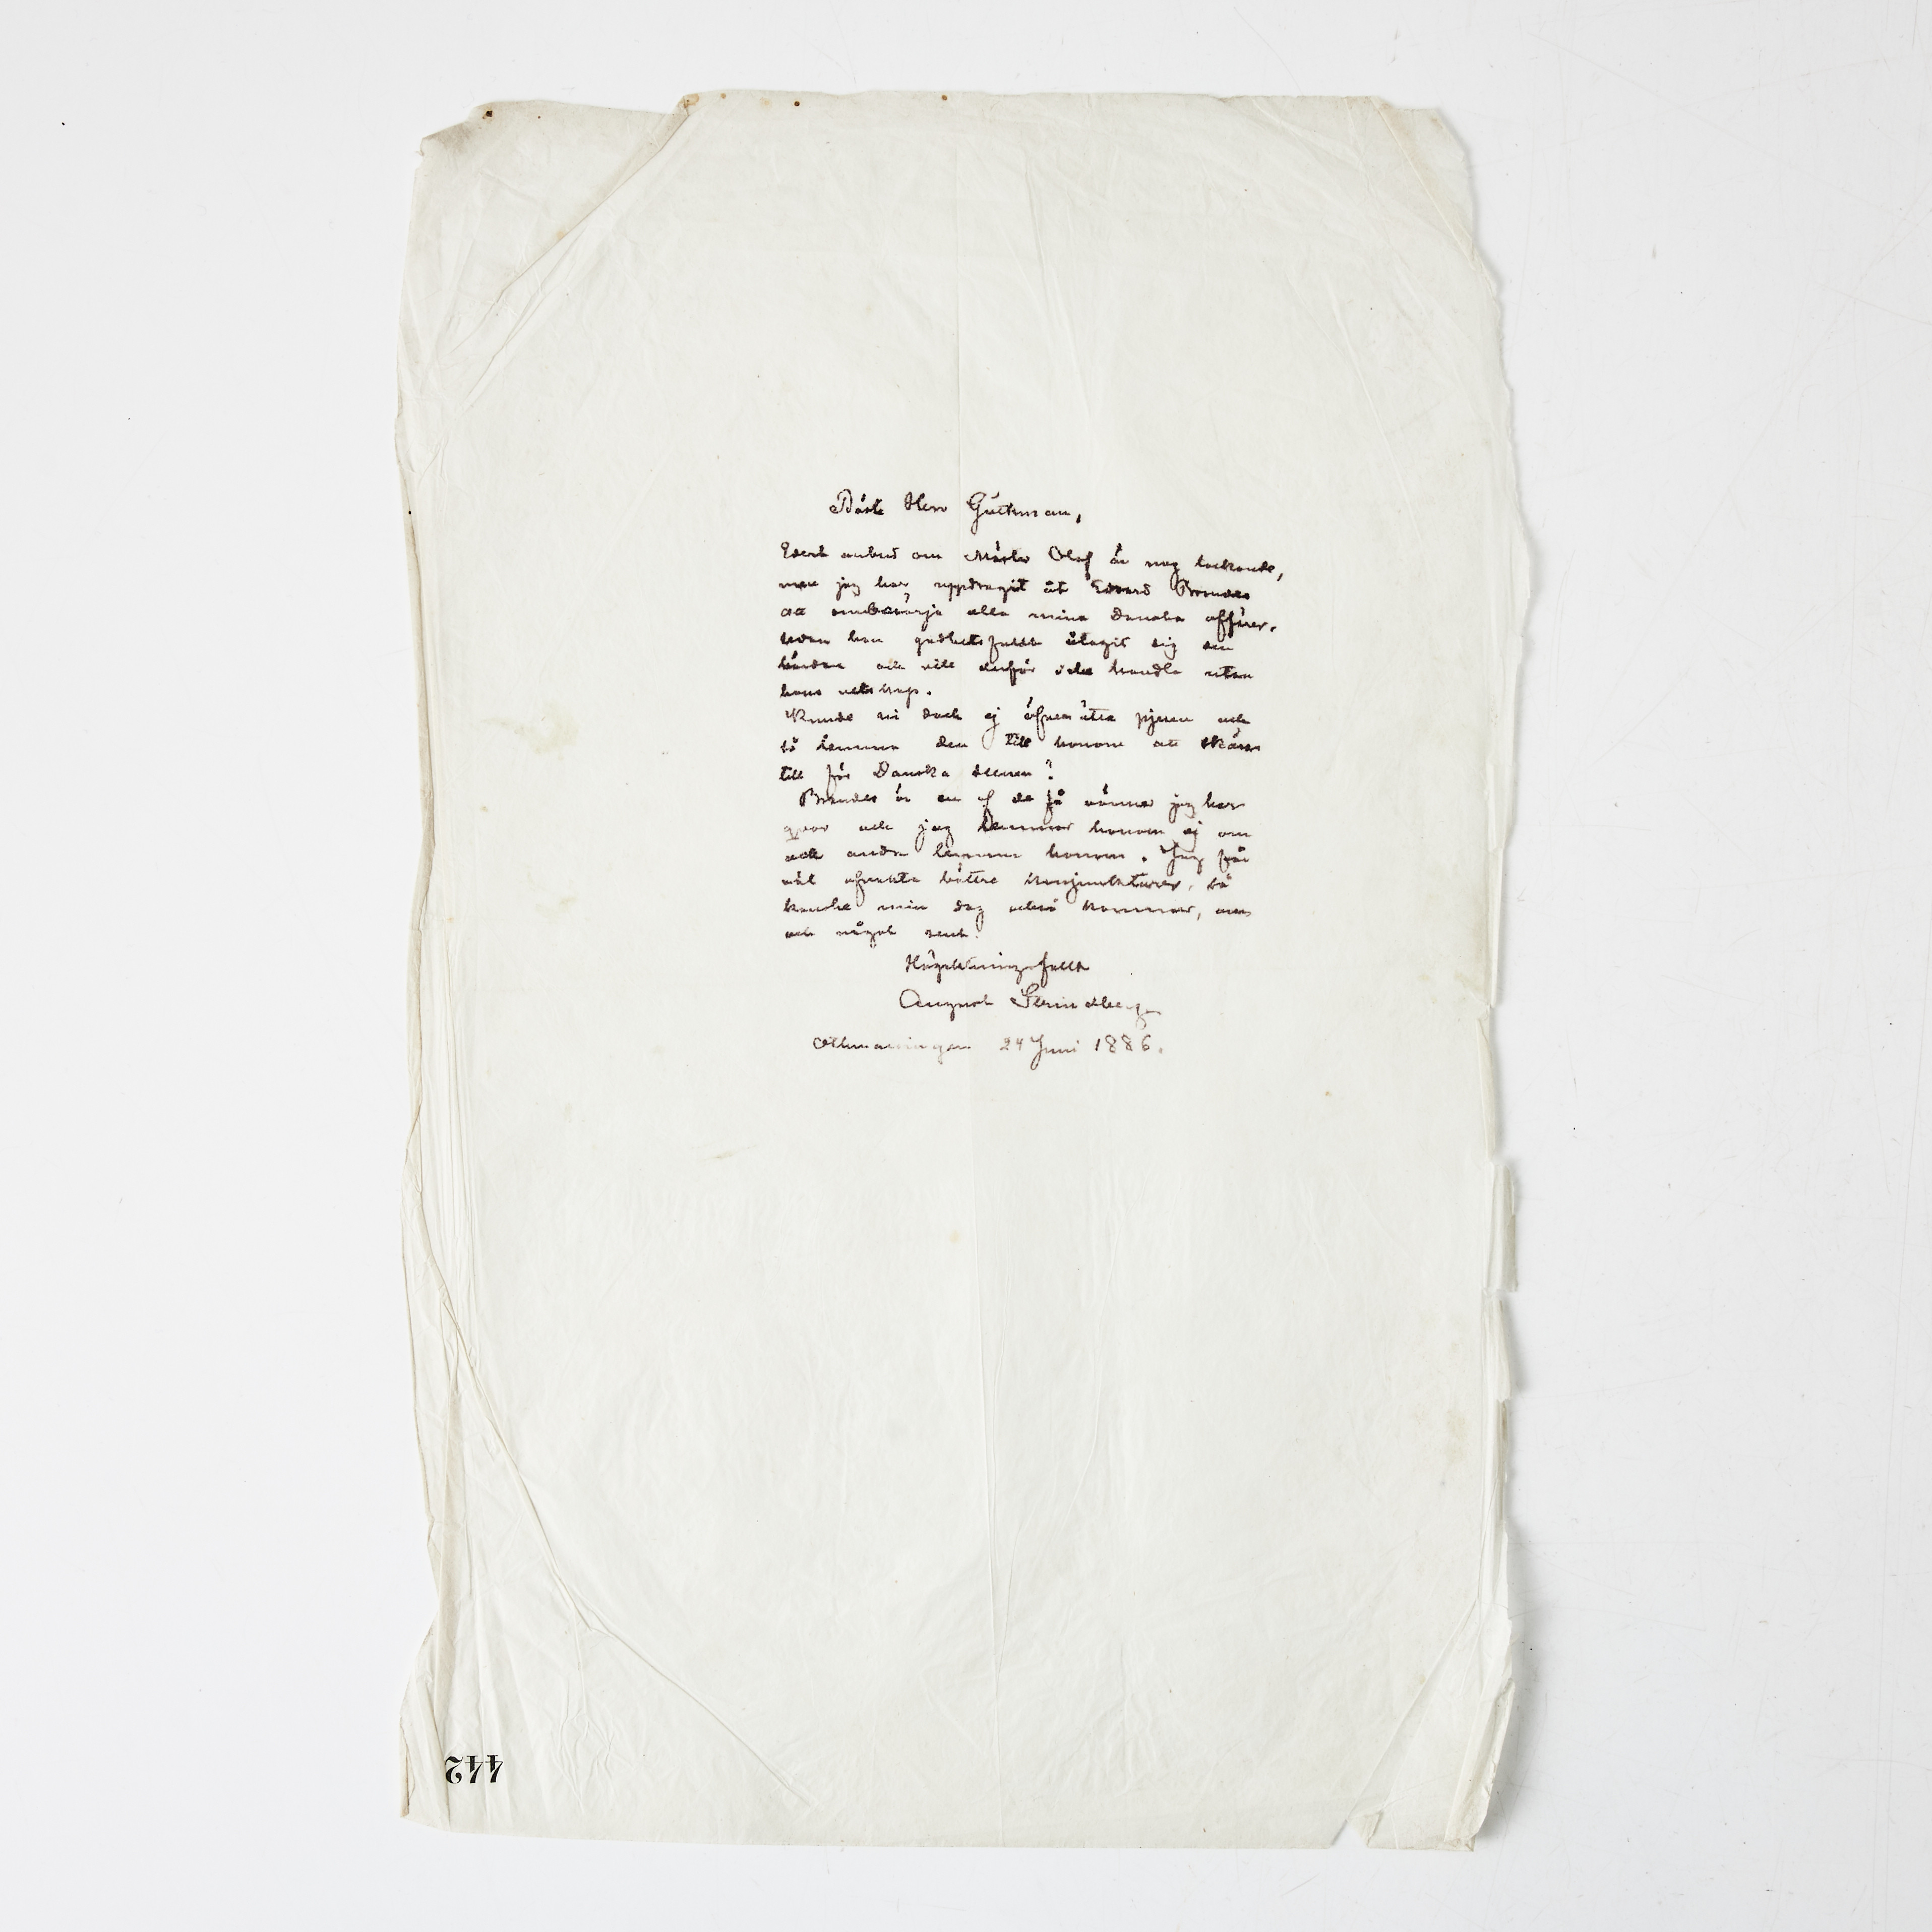 Bäste Herr Gutkman,
Edert anbud om Mäster Olof är nog lockande,
men jag har uppdragit åt Edvard Brandes
att ombesörja alla mina Danska affärer,
sedan han godhetsfullt åtagit sig den
bördan och vill derför icke handla utan
hans vetskap.
Kunde ni dock ej öfversätta pjesen och
så lemna den till honom att skära
till för Danska scenen?
Brandes är en af de få vänner jag har
qvar och jag lemnar honom ej om
ock andra lemna honom. Jag får
väl afvakta bättre konjunkturer, så
kanske min dag också kommer, om
ock något sent.
Högaktningsfullt
August Strindberg
Othmarsingen 24 Juni 1886.
442